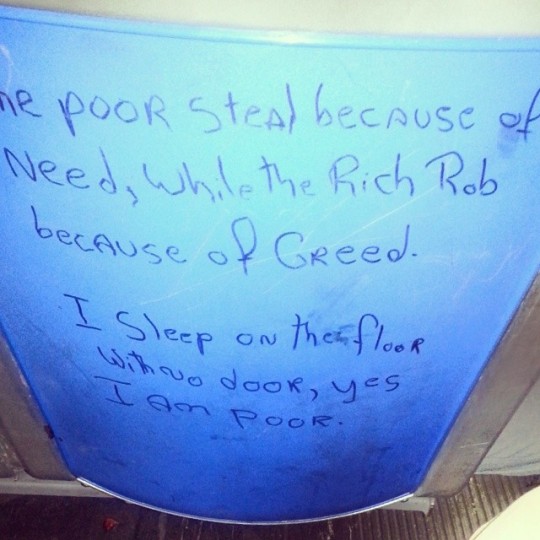 he POOR Steal because of
Need, While the Rich Rob
because of Greed.
I Sleep on the floor
With no door, yes
I Am Poor.